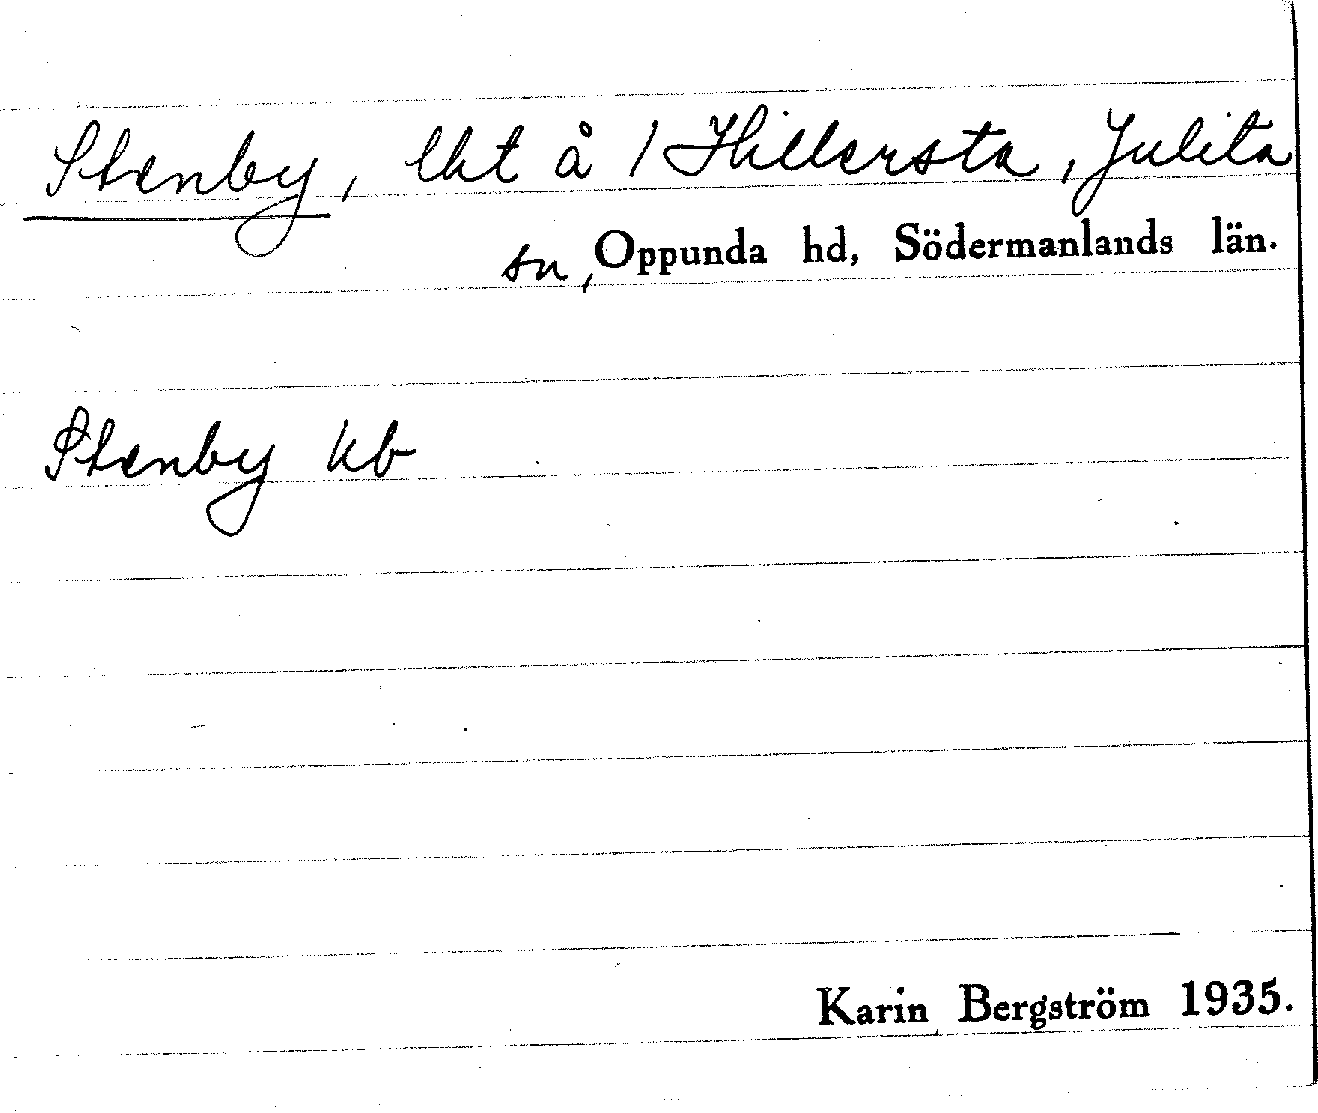 Stenby, lht å 1 Hillersta, Julita
sn, Oppunda hd, Södermanlands län.
Stenby kb
Karin Bergström 1935.